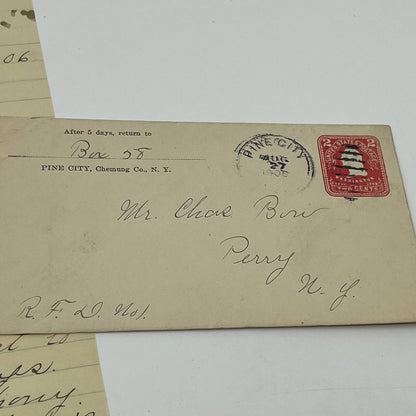 06
After 5 days, return to
Box 58
PINE CITY, Chemung Co., N. Y.
PINE CITY
AUG
27
1906
2 UNITED STATES POSTAGE 2
WASHINGTON
TWO CENTS
Mr. Chas Bow
Perry
N. Y.
R. F. D. No 1.
to